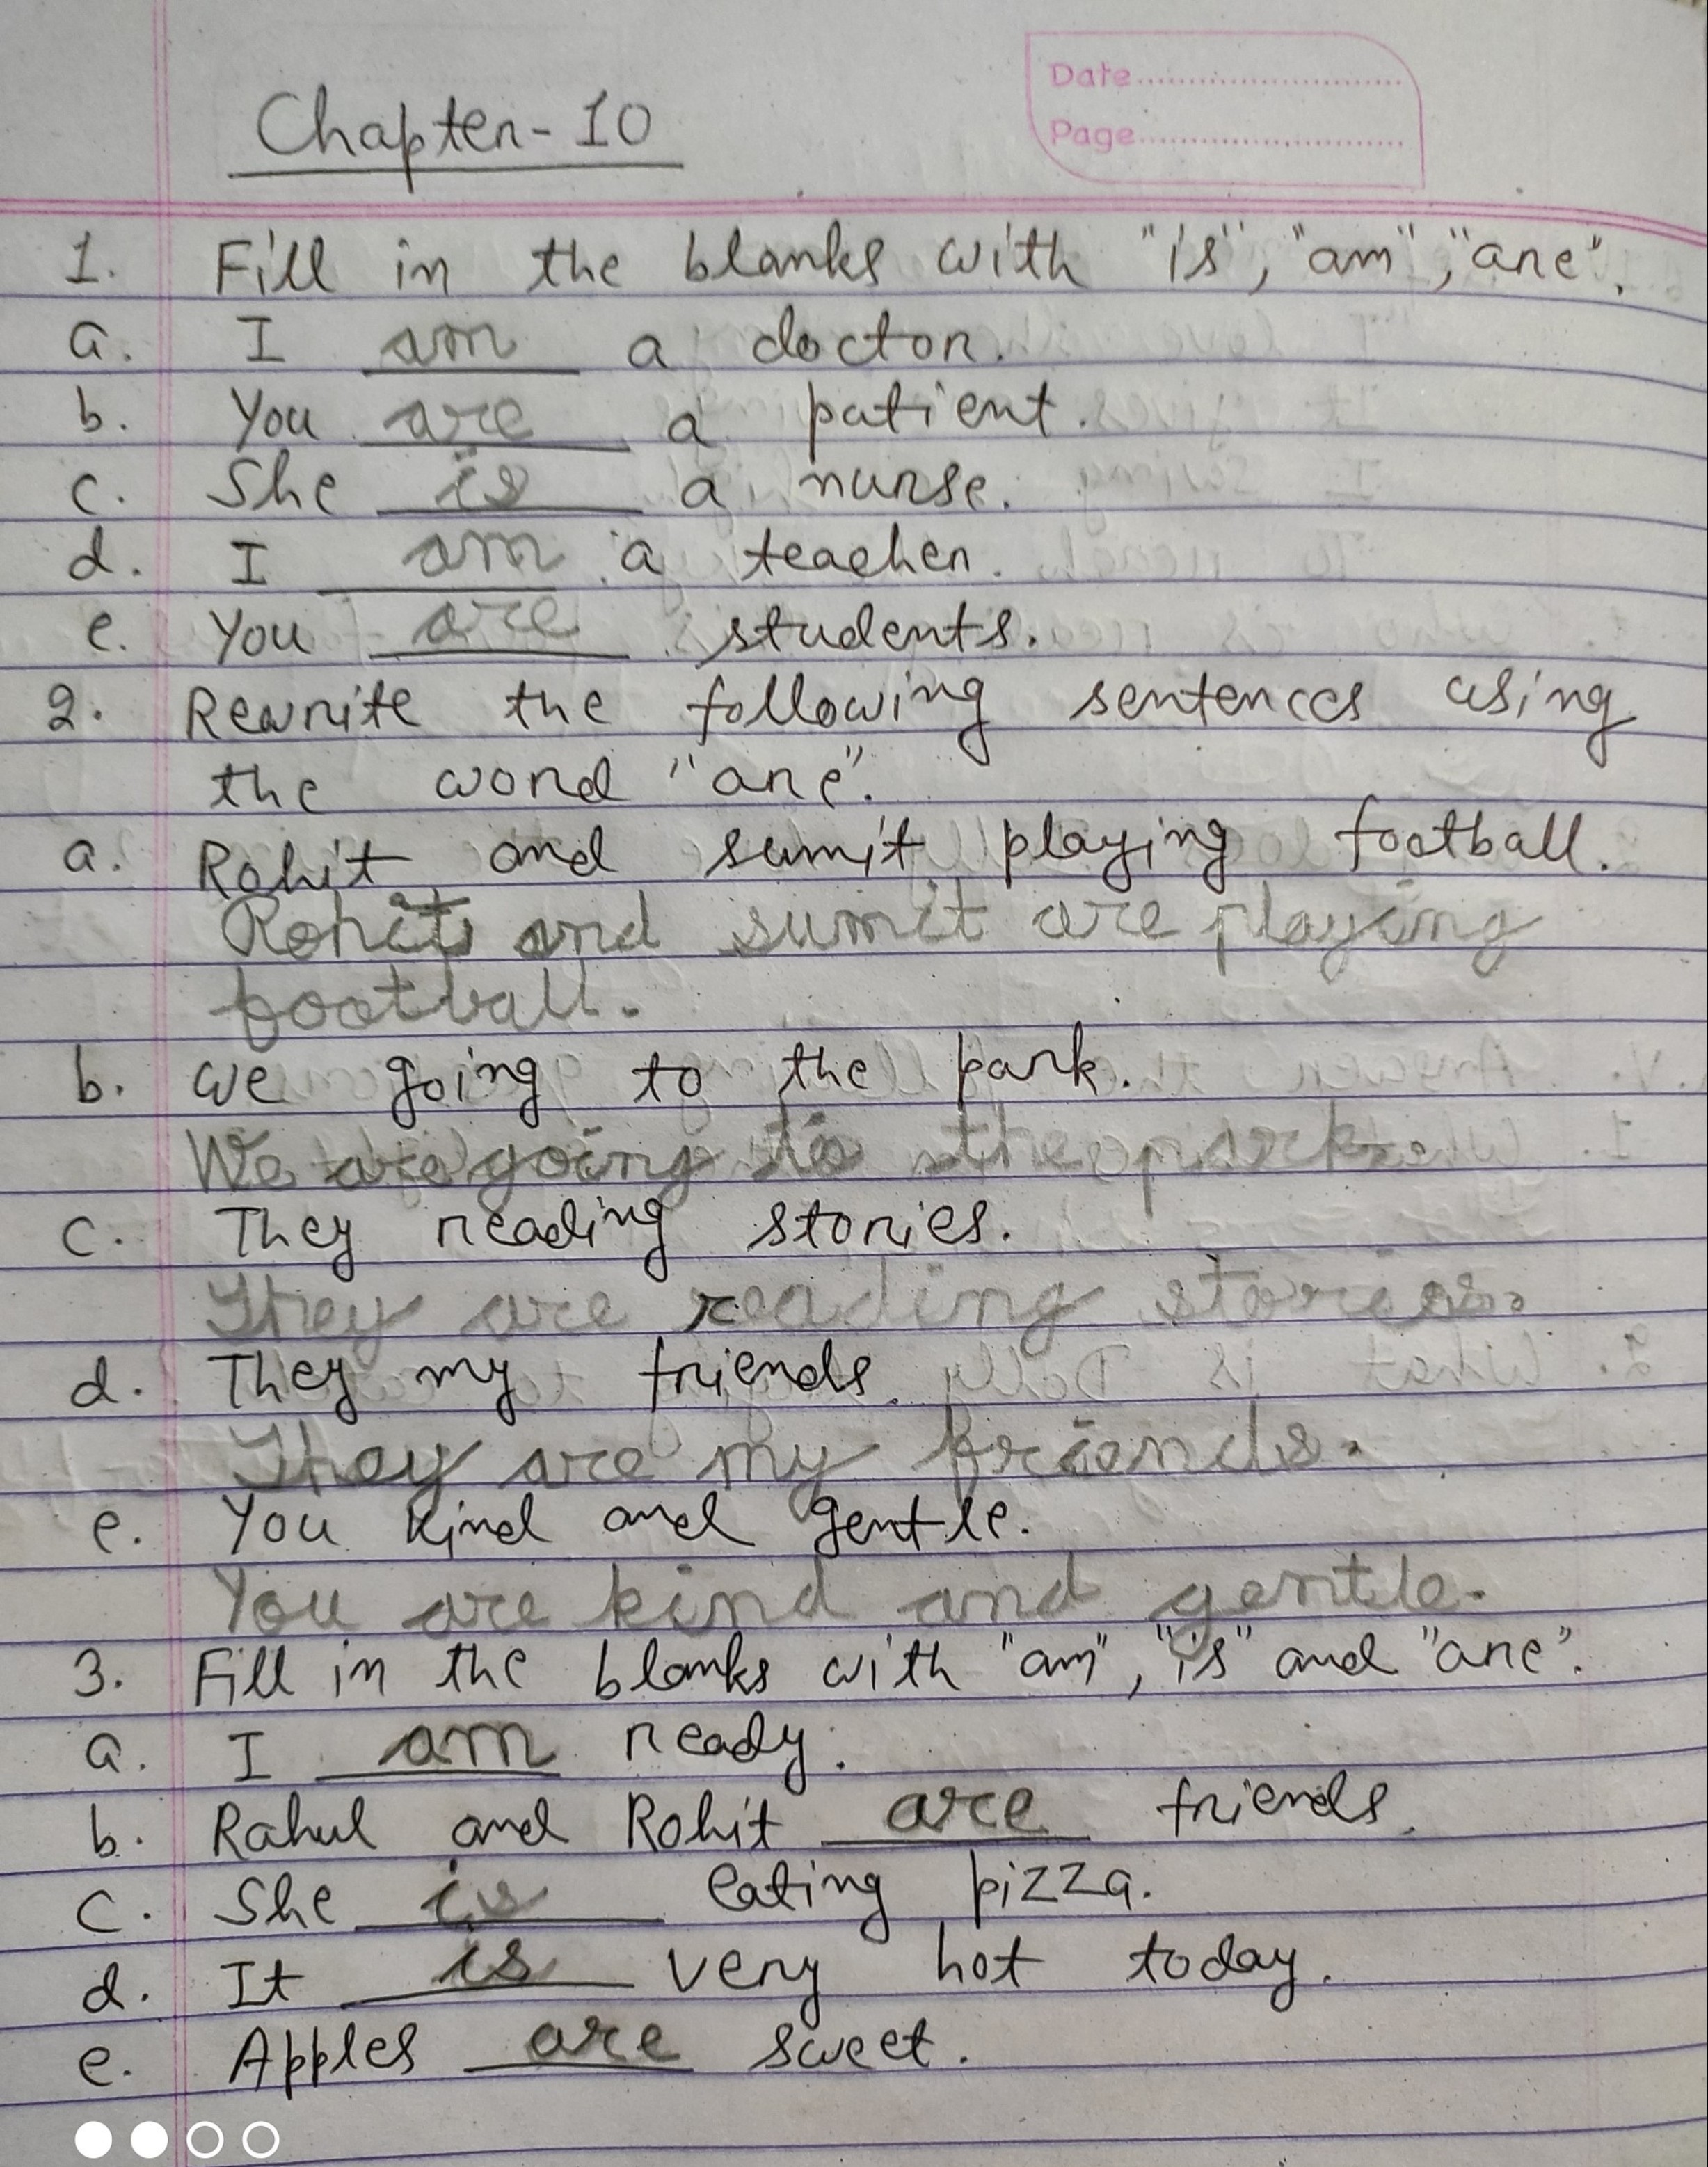 Date
Page
Chapter-10
1. Fill in the blanks with "is", "am", "are".
a. I am a doctor.
b. You are a patient.
c. She is a nurse.
d. I am a teacher.
e. You are students.
2. Rewrite the following sentences using
the word "are".
a. Rohit and sumit playing football.
Rohit and sumit are playing
football.
b. We going to the park.
We are going to the park.
c. They reading stories.
They are reading stories.
d. They my friends.
They are my friends.
e. You kind and gentle.
You are kind and gentle.
3. Fill in the blanks with "am", "is" and "are".
a. I am ready.
b. Rahul and Rohit are friends.
c. She is eating pizza.
d. It is very hot today.
e. Apples are sweet.